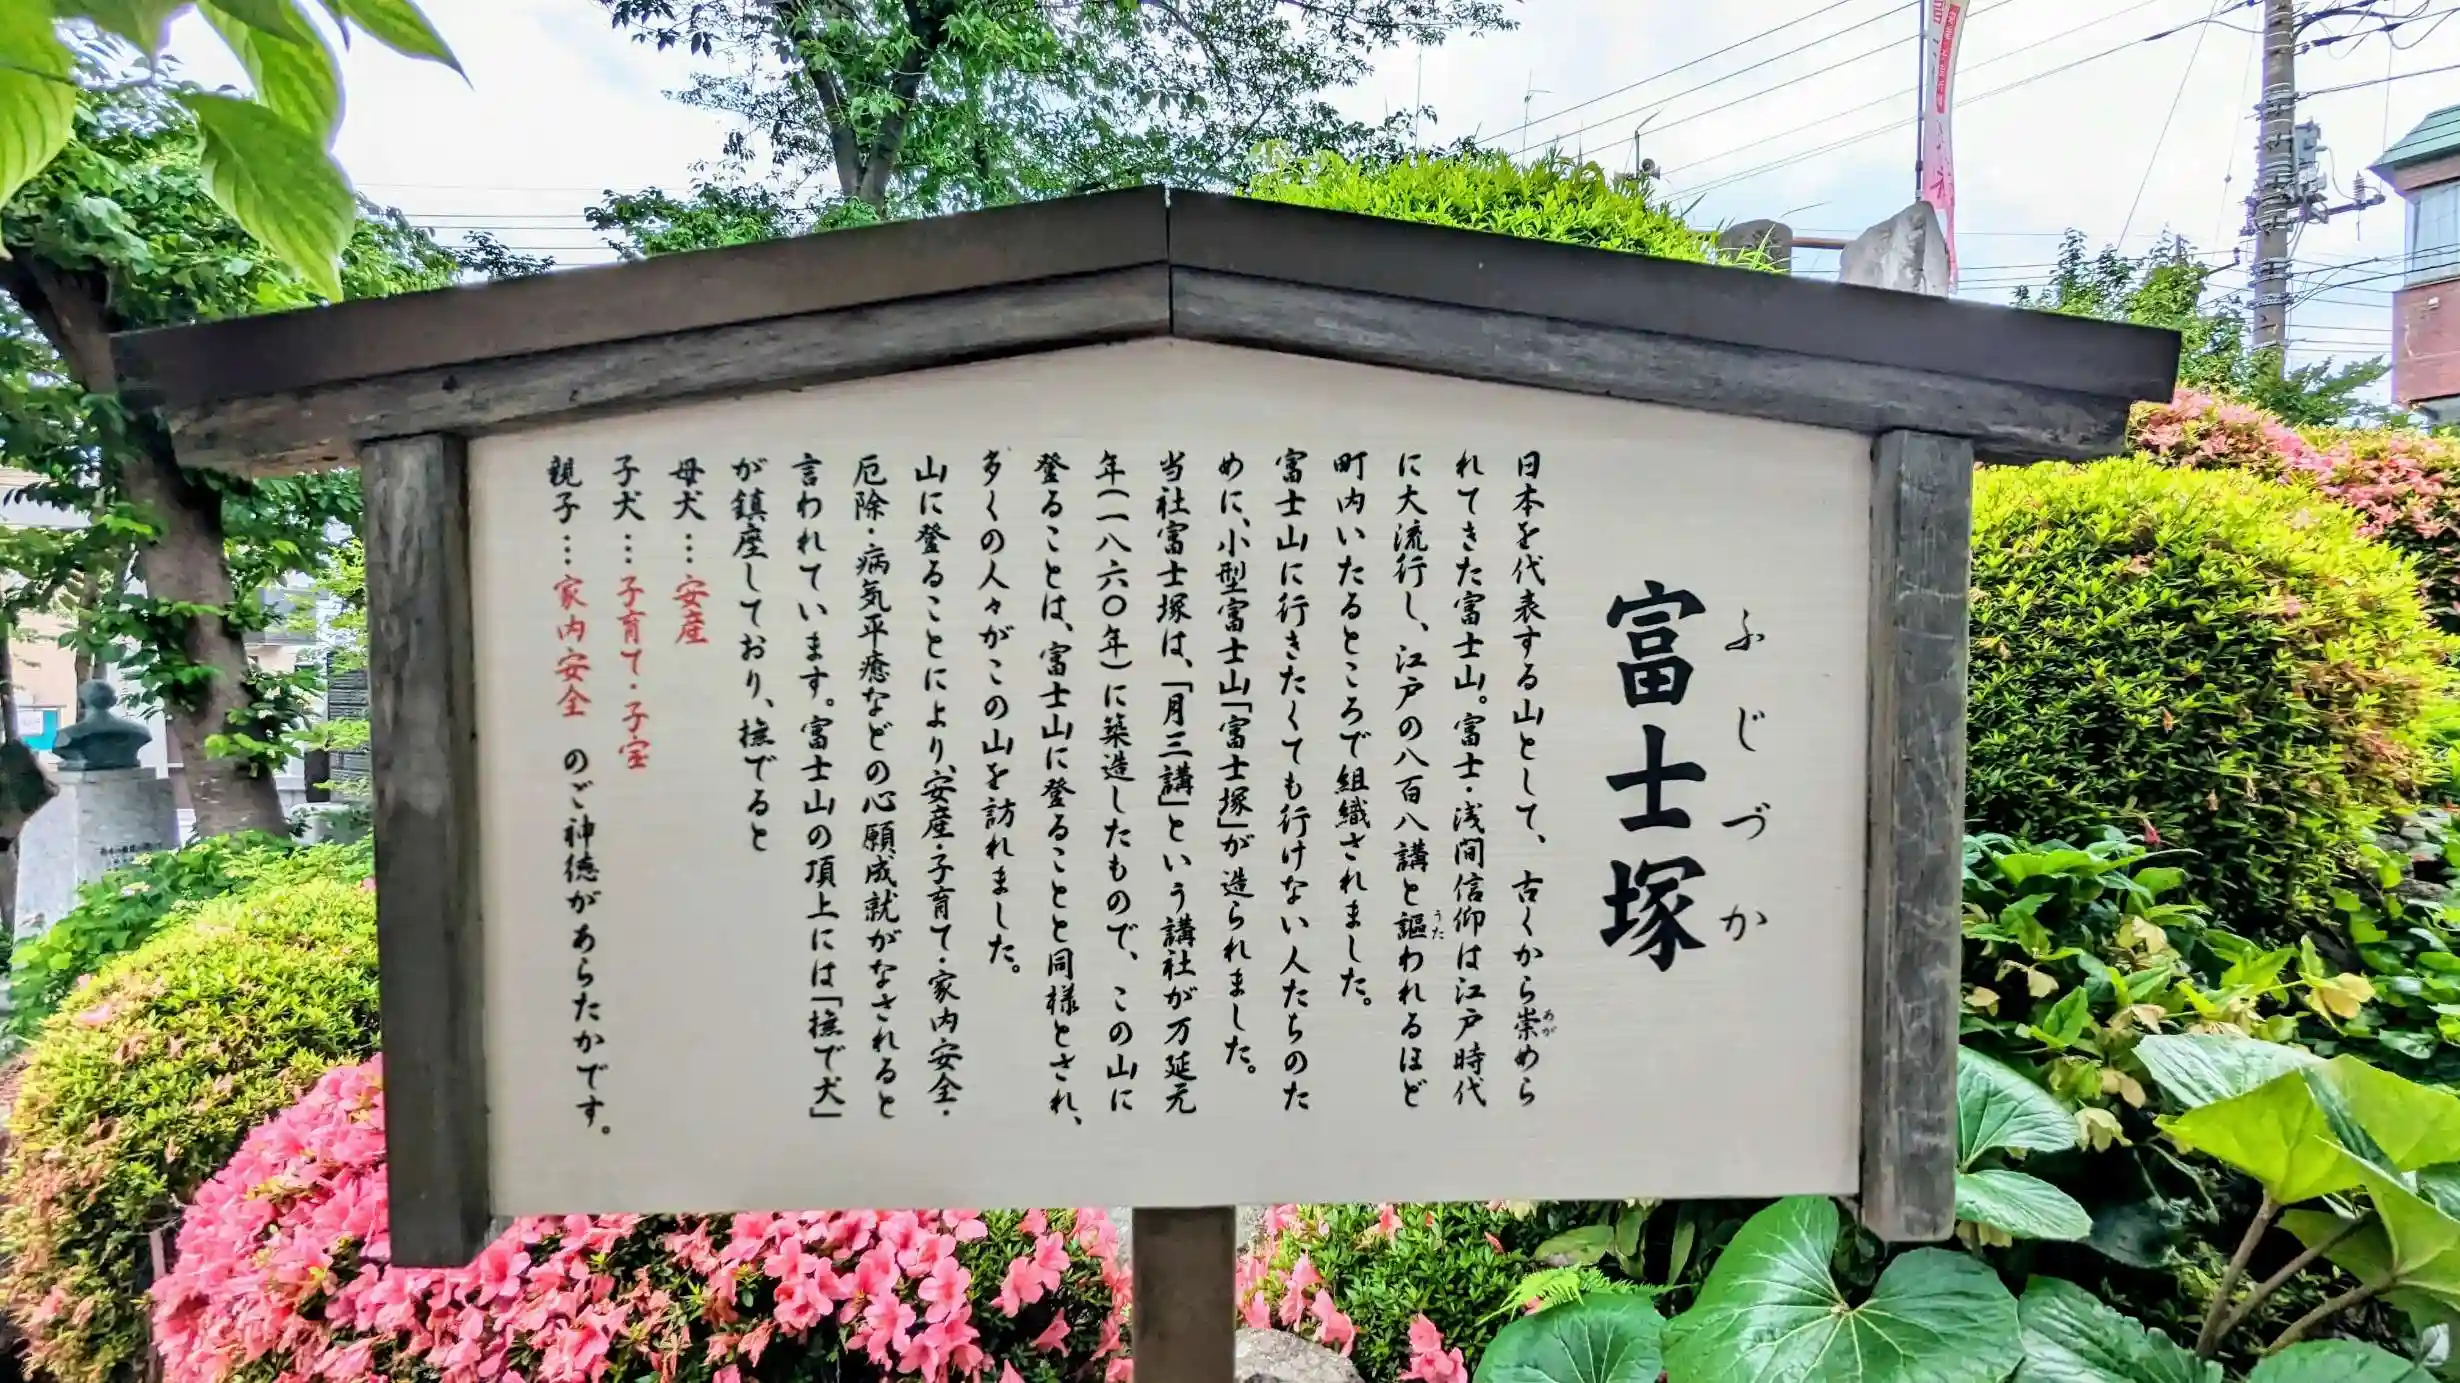 富士塚
ふじづか
日本を代表する山として、古くから崇めら
あが
れてきた富士山。富士・浅間信仰は江戸時代
に大流行し、江戸の八百八講と謳われるほど
うた
町内いたるところで組織されました。
富士山に行きたくても行けない人たちのた
めに、小型富士山「富士塚」が造られました。
当社富士塚は、「月三講」という講社が万延元
年(一八六〇年)に築造したもので、この山に
登ることは、富士山に登ることと同様とされ、
多くの人々がこの山を訪れました。
山に登ることにより、安産・子育て・家内安全・
厄除・病気平癒などの心願成就がなされると
言われています。富士山の頂上には「撫で犬」
が鎮座しており、撫でると
母犬…安産
子犬…子育て・子宝
親子…家内安全 のご神徳があらたかです。